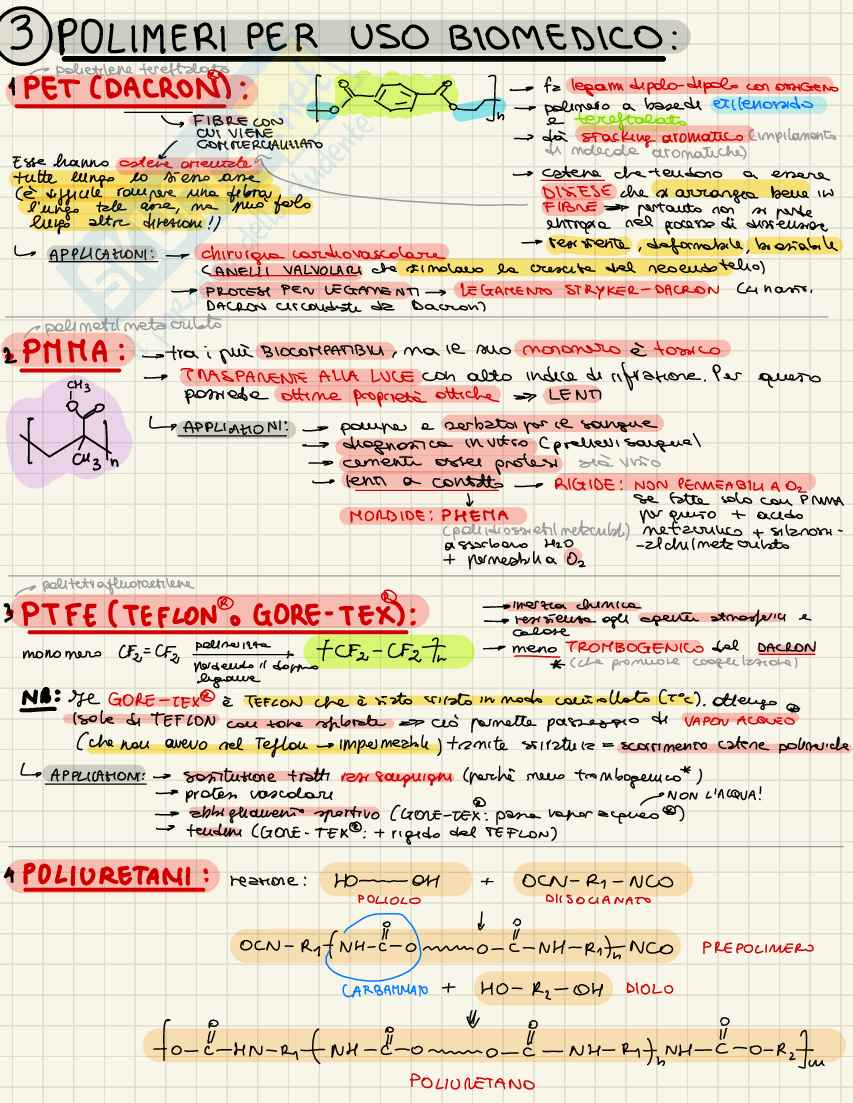 3 POLIMERI PER USO BIOMEDICO:
polietilene tereftalato
1 PET (DACRON®):
FIBRE CON
CUI VIENE
COMMERCIALIZZATO
Esse hanno catene orientate
tutte lungo lo stesso asse
(è difficile rompere una fibra
lungo tale asse, ma può farlo
lungo altre direzioni!)
n
→ fa legami dipolo-dipolo con OSSIGENO
→ polimero a base di etilenossido
e tereftalato
→ dà stacking aromatico (impilamento
di molecole aromatiche)
→ catene che tendono a essere
DISTESE che si arrangiano bene in
FIBRE → pertanto non si perde
entropia nel processo di distensione
→ resistente, deformabile, bioinalabile
APPLICAZIONI: → chirurgia cardiovascolare
(ANELLI VALVOLARI che stimolano la crescita del neoendotelio)
→ PROTESI PER LEGAMENTI → LEGAMENTO STRYKER-DACRON
DACRON circondate da Dacron)
polimetilmetacrilato
2 PMMA:
→ tra i più BIOCOMPATIBILI, ma il suo monomero è tossico
→ TRASPARENTE ALLA LUCE con alto indice di rifrazione. Per questo
possiede ottime proprietà ottiche ⇒ LENTI
CH3
O
O
CH3
n
APPLICAZIONI: → pompe e serbatoi per il sangue
→ diagnostica in vitro (prelievi sangue)
→ cementi ossei protesi
→ lenti a contatto → RIGIDE: NON PERMEABILI A O2
se fatte solo con PMMA
per questo + acido
metacrilico + silanossi-
-alchilmetacrilato
MORBIDE: PHEMA
(poliidrossietilmetacrilato)
assorbono H2O
+ permeabili a O2
politetrafluoroetilene
3 PTFE (TEFLON® o GORE-TEX®):
→ inerzia chimica
→ resistenza agli agenti atmosferici e
calore
→ meno TROMBOGENICO del DACRON
* (che promuove coagulazione)
monomero CF2=CF2 polimerizza
perdendo il doppio
legame
CF2-CF2 n
NB: Il GORE-TEX® è TEFLON che è stato stirato in modo controllato (T°C). Ottengo
isole di TEFLON con zone sfibrate ⇒ ciò permette passaggio di VAPOR ACQUEO
(che non avevo nel Teflon → impermeabile) tramite stiratura = scorrimento catene polimeriche
APPLICAZIONI: → sostituzione tratti vasi sanguigni (perché meno trombogenico*)
→ protesi vascolari
→ abbigliamento sportivo (GORE-TEX®: passa vapor acqueo)
NON L'ACQUA!
→ tendini (GORE-TEX®: + rigido del TEFLON)
4 POLIURETANI: reazione: HO OH + OCN-R1-NCO
POLIOLO DIISOCIANATO
OCN-R1 NH-C-O O-C-NH-R1 n NCO PREPOLIMERO
CARBAMMATO + HO-R2-OH DIOLO
O-C-HN-R1 NH-C-O O-C-NH-R1 n NH-C-O-R2 m
POLIURETANO